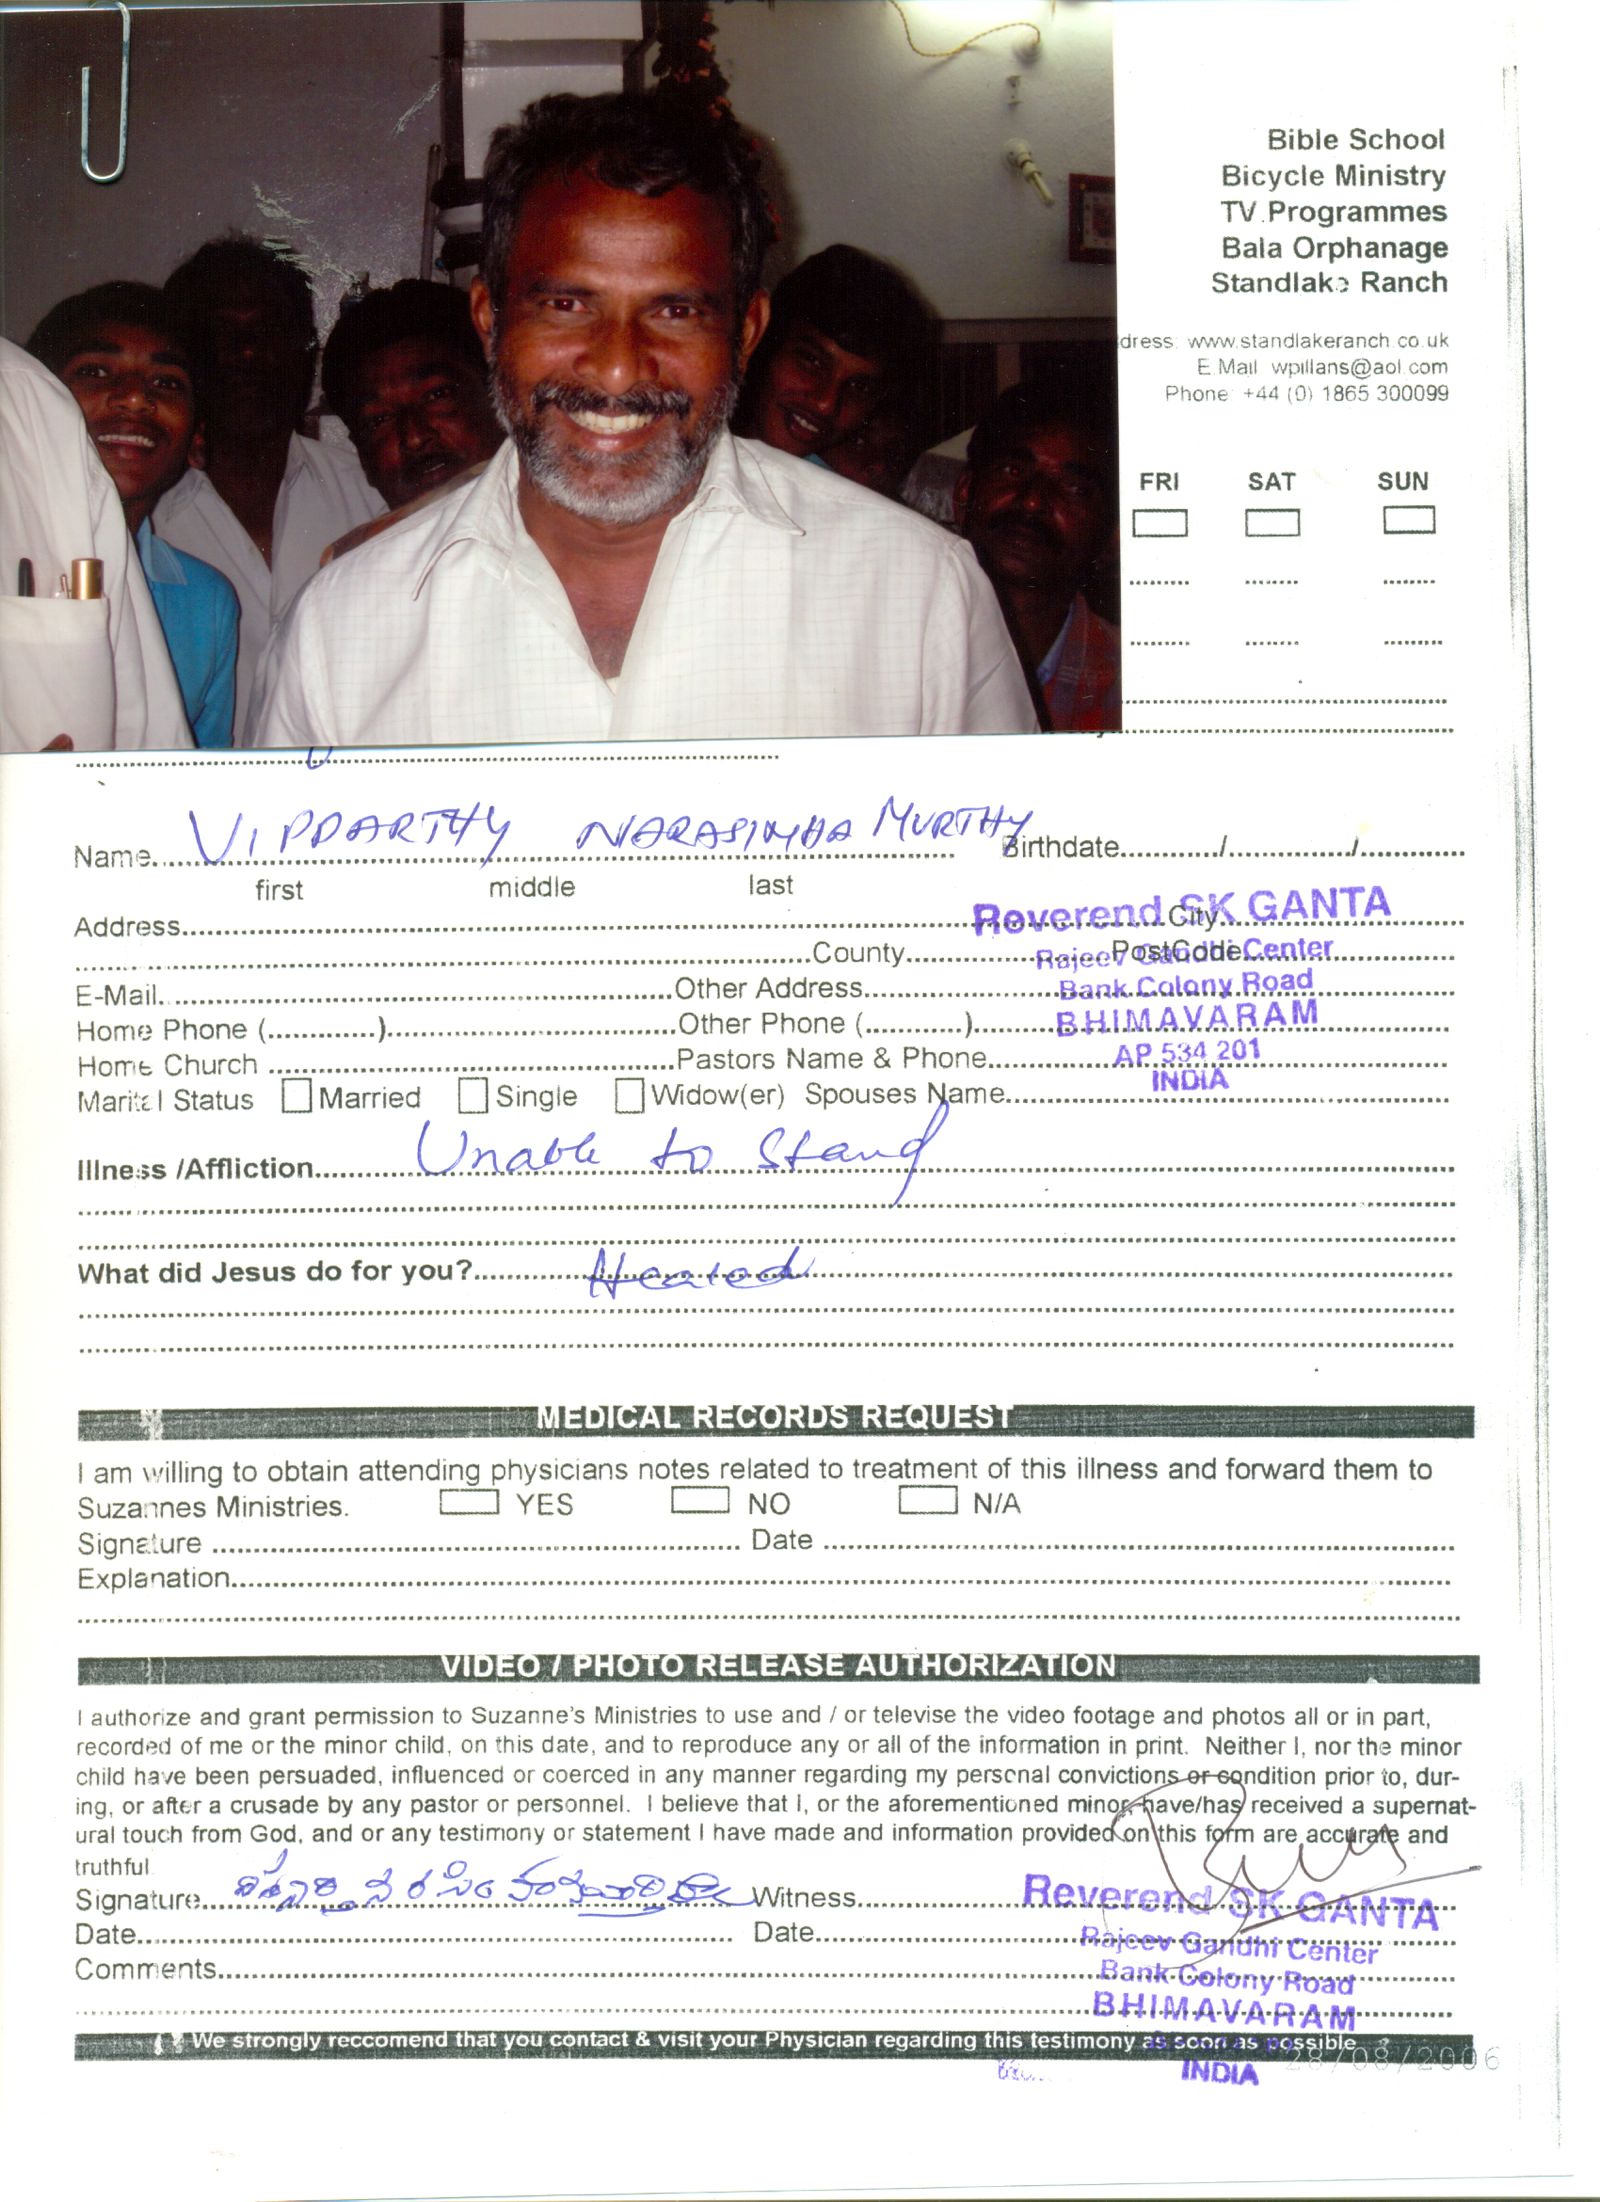 Bible School
Bicycle Ministry
TV Programmes
Bala Orphanage
Standlake Ranch
dress: www.standlakeranch.co.uk
E.Mail wpillans@aol.com
Phone: +44 (0) 1865 300099
FRI SAT SUN
Name VIPPARTHY NARASIMHA MURTHY Birthdate / /
first middle last
Address City
Reverend SK GANTA
County PostCode
Rajeev Gandhi Center
E-Mail Other Address
Bank Colony Road
Home Phone ( ) Other Phone ( )
BHIMAVARAM
Home Church Pastors Name & Phone
AP 534 201
INDIA
Marital Status Married Single Widow(er) Spouses Name
Illness /Affliction Unable to Stand
What did Jesus do for you? Healed
MEDICAL RECORDS REQUEST
I am willing to obtain attending physicians notes related to treatment of this illness and forward them to
Suzannes Ministries. YES NO N/A
Signature Date
Explanation
VIDEO / PHOTO RELEASE AUTHORIZATION
I authorize and grant permission to Suzanne's Ministries to use and / or televise the video footage and photos all or in part,
recorded of me or the minor child, on this date, and to reproduce any or all of the information in print. Neither I, nor the minor
child have been persuaded, influenced or coerced in any manner regarding my personal convictions or condition prior to, dur-
ing, or after a crusade by any pastor or personnel. I believe that I, or the aforementioned minor have/has received a supernat-
ural touch from God, and or any testimony or statement I have made and information provided on this form are accurate and
truthful
Signature Witness
Reverend SK GANTA
Date Date
Rajeev Gandhi Center
Comments
Bank Colony Road
BHIMAVARAM
We strongly reccomend that you contact & visit your Physician regarding this testimony as soon as possible
28/08/2006
INDIA